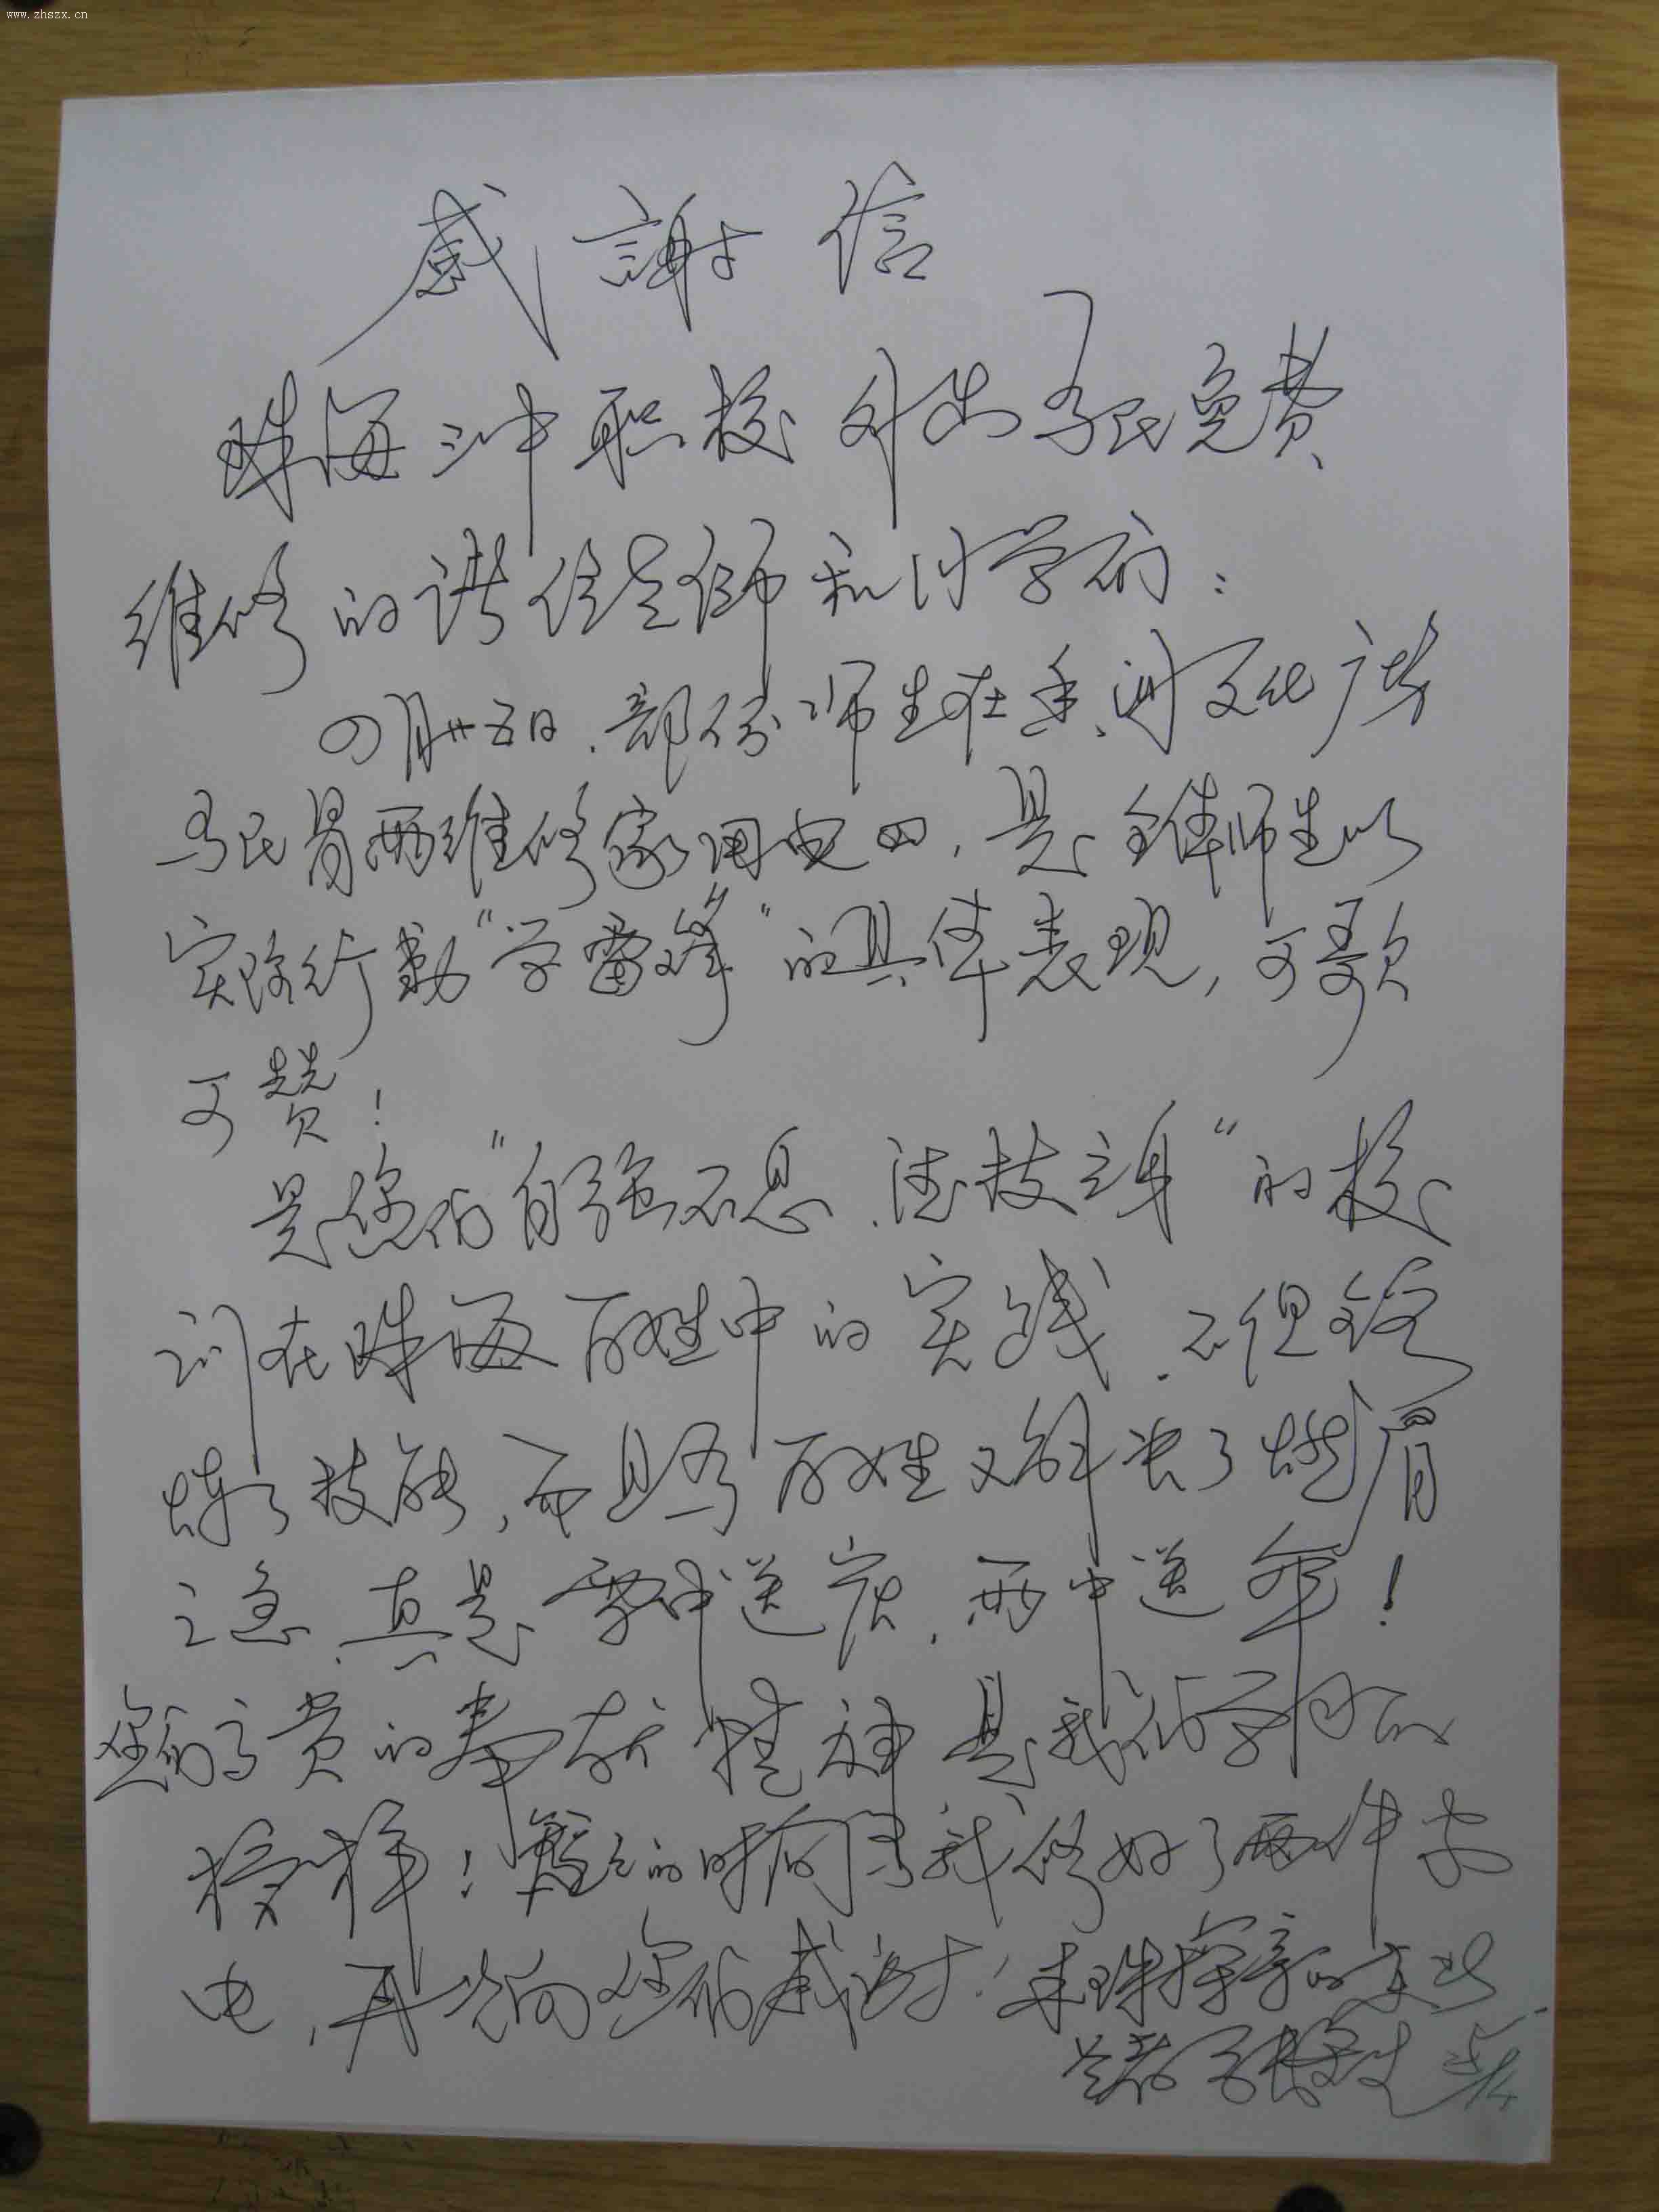 www.zhszx.cn
感謝信
珠海三中职校外出为民免费
维修的诸位老师和同学们：
四月廿五日，部份师生在香洲文化广场
为民冒雨维修家用电四，是全体师生以
实际行動“学雷锋”的具体表现，可歌
可赞！
是您们“自强不息、德技立身”的校
训在珠海百姓中的实践，不但锻
炼了技能，而且为百姓又解决了燃眉
之急，真是雪中送炭，雨中送伞！
您们高贵的奉献精神是我们学习的
榜样！的时间为我修好了两件家
电，再次向您们感谢！来珠探亲的